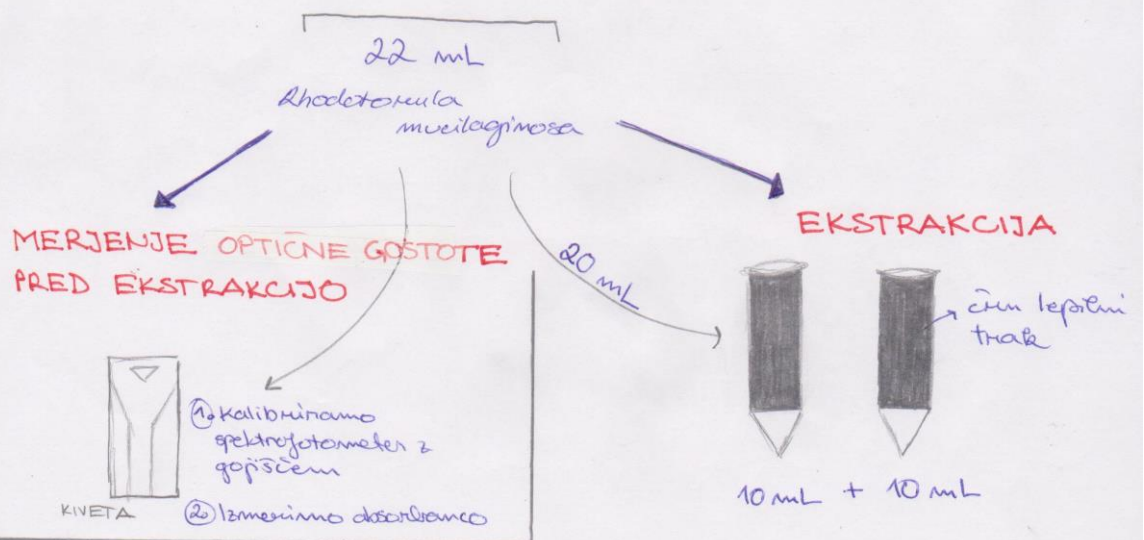 22 mL
Rhodotorula
mucilaginosa
MERJENJE OPTIČNE GOSTOTE
PRED EKSTRAKCIJO
20 mL
EKSTRAKCIJA
črn lepilni
trak
10 mL + 10 mL
1. Kalibriramo
spektrofotometer z
gojiščem
2. Izmerimo absorbanco
KIVETA